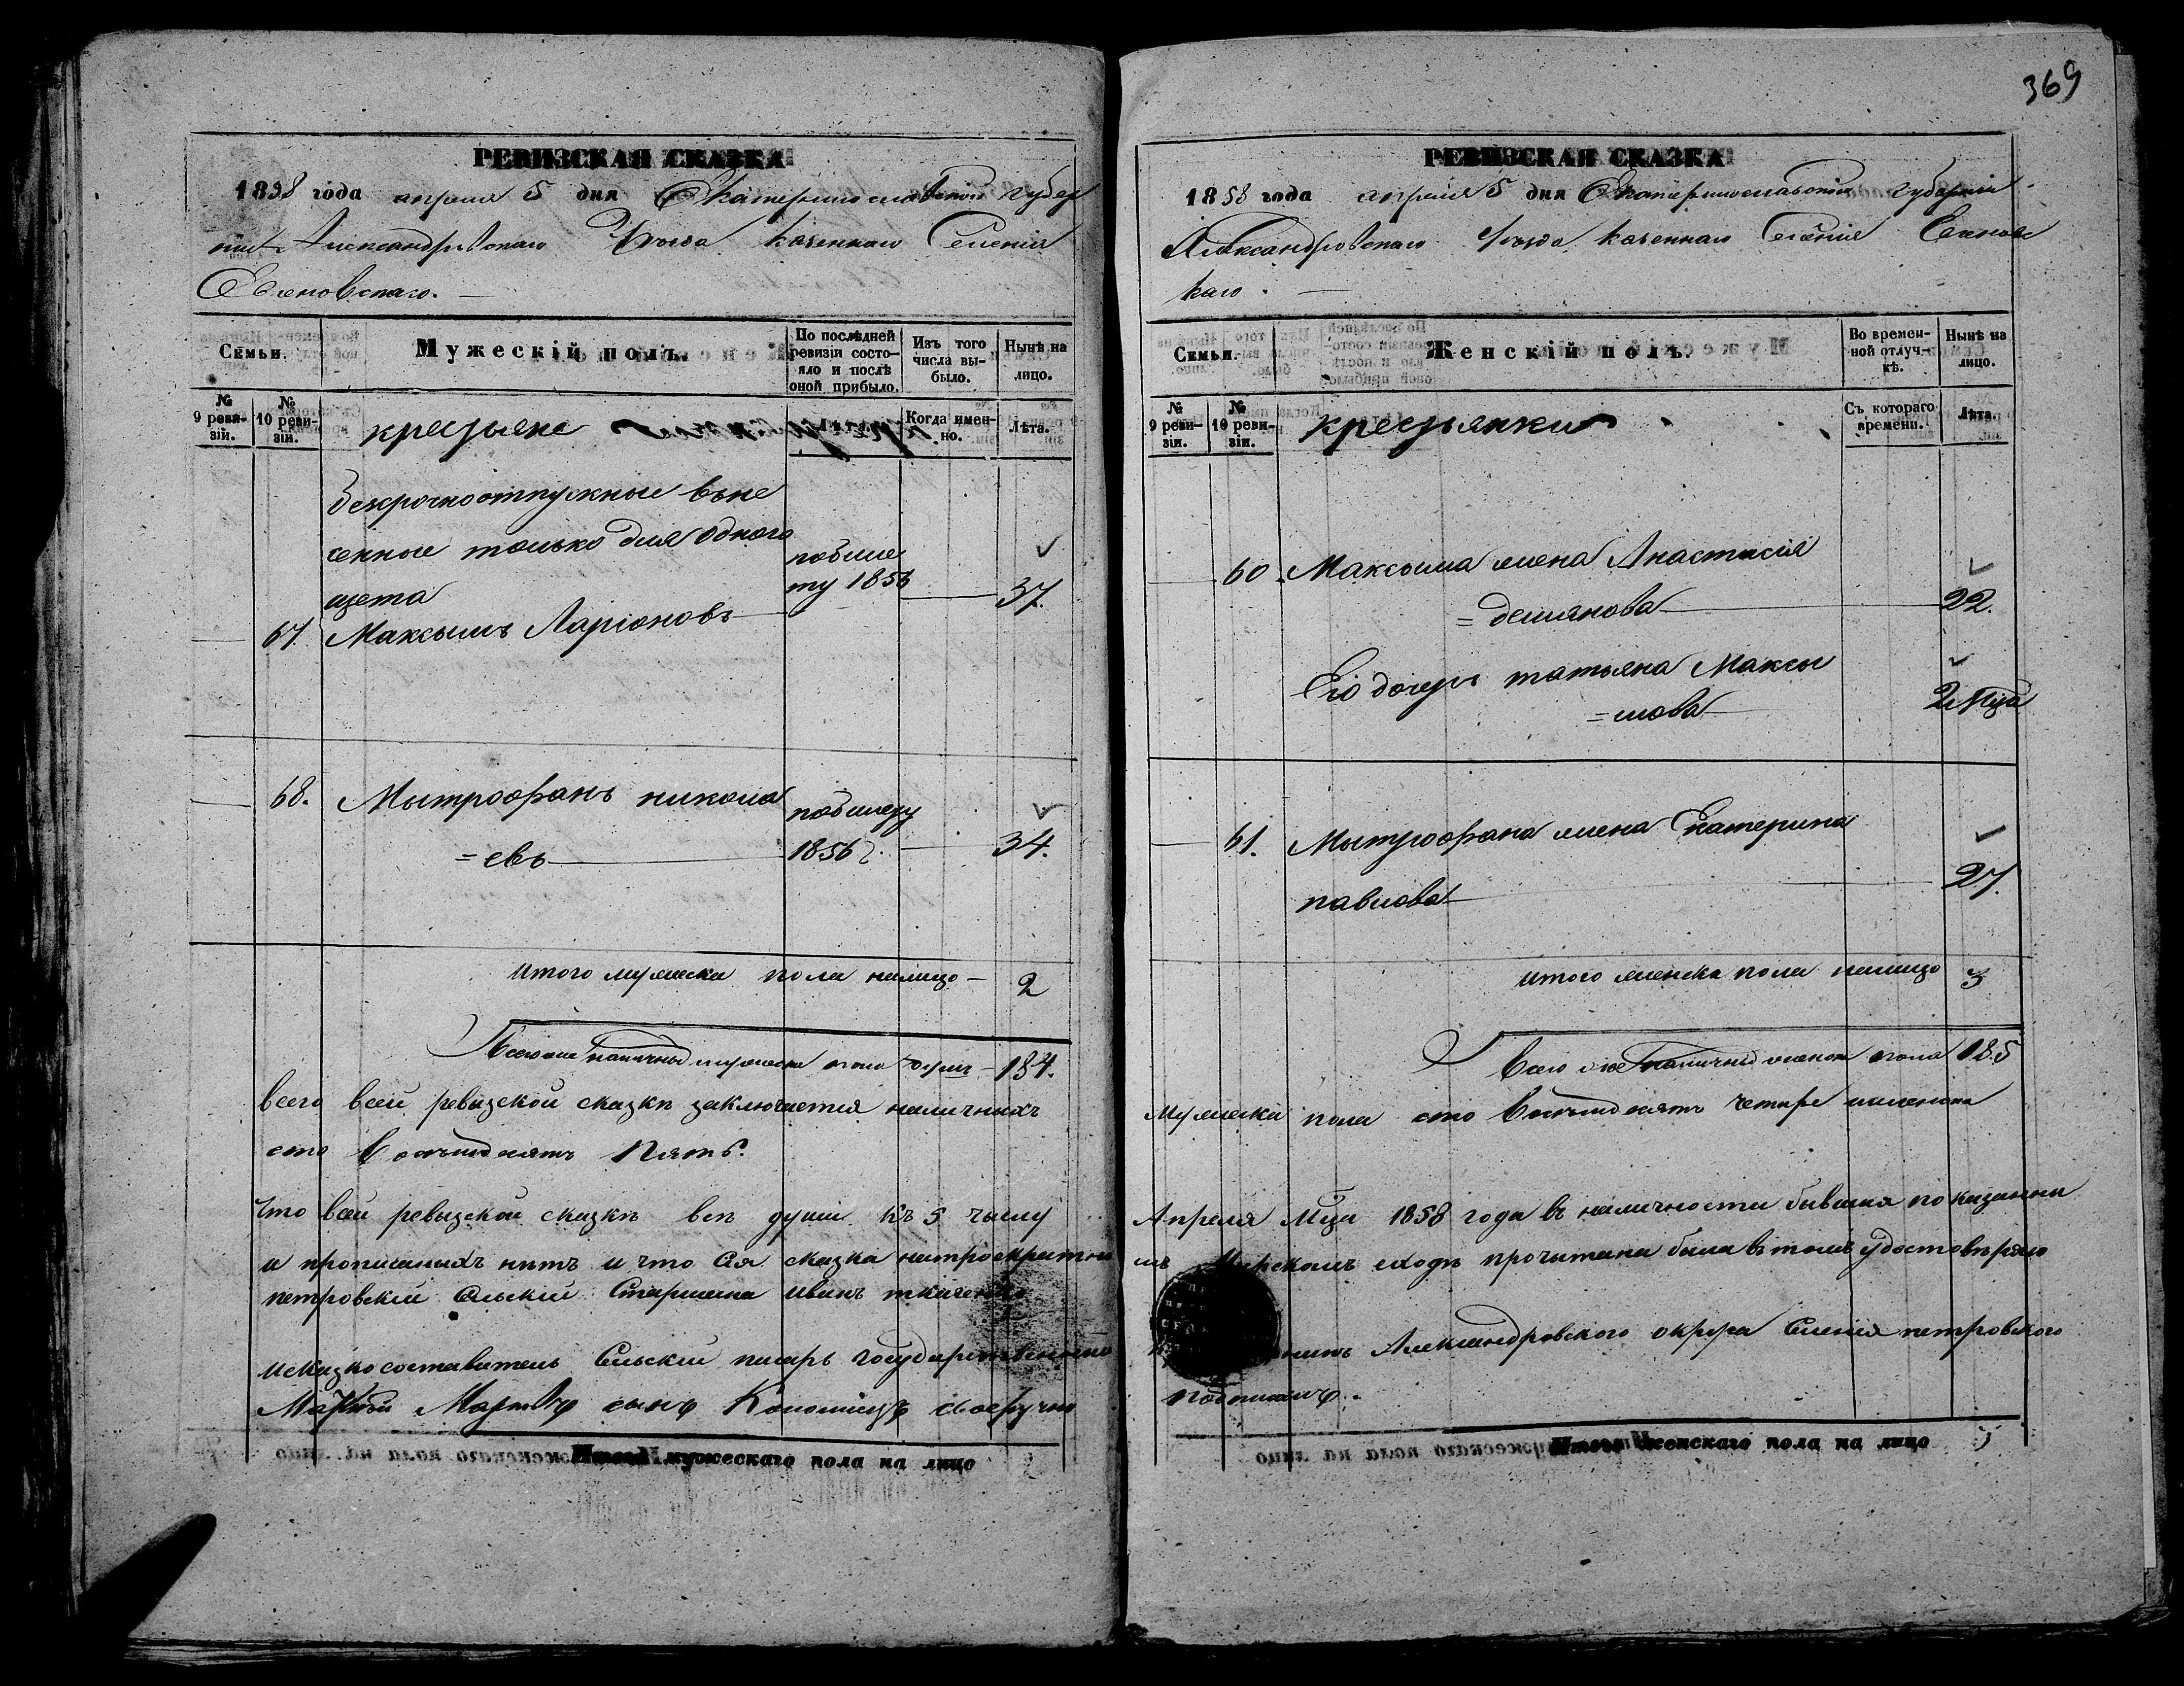 369
РЕВИЗСКАЯ СКАЗКА
1858 года апреля 5 дня Екатеринославской губер
нии Александровскаго Уезда казеннаго Селенія
Еленовскаго.
Семьи.
Мужескій полъ.
По послѣдней ревизіи состояло и послѣ оной прибыло.
Изъ того числа выбыло.
Нынѣ на лицо.
№ 9 ревизіи.
№ 10 ревизіи.
крестьяне
Когда именно.
Лѣта.
безсрочноотпускные въне
сенные только для одного
щета
67. Максымъ Ларіоновъ
побиле
ту 1856
37.
68. Мытрофанъ никола
=евъ
побилету
1856 г.
34.
итого мужеска пола налицо 2
Всего наличны мужеска пола душъ 184.
всего всей ревизской сказкѣ заключается наличныхъ
сто восемьдесятъ Пять.
что всей ревизской сказкѣ всѣ души къ 5 числу
и прописныхъ нѣтъ и что сія сказка натроекратно
петровскій Сельскій Старшина иванъ
исказкосоставитель Сельскій писарь государственного
сынъ своеручно
Итого мужескаго пола на лицо
РЕВИЗСКАЯ СКАЗКА
1858 года апреля 5 дня Екатеринославской губерніи
Александровскаго Уезда казеннаго Селенія Еленовс
каго.
Семьи.
Женскій полъ.
Во временной отлучкѣ.
Нынѣ на лицо.
№ 9 ревизіи.
№ 10 ревизіи.
крестьянки
Съ котораго времени.
Лѣта.
60. Максыма жена Анастасія
=демянова
22.
Его дочерь татьяна Максы
=мова
2 Мца
61. Мытрофана жена Екатерина
павлова
27.
итого женска пола налицо 3
Всего наличны женска пола 185
Мужеска пола сто восемьдесятъ четыре иженска
Апреля Мца 1858 года въ наличности бывшия показанны
мъ Мирскомъ сходѣ прочитана была втомъ удостовѣряю
Александровского округа Селенія петровского
подписалъ.
Итого женскаго пола на лицо